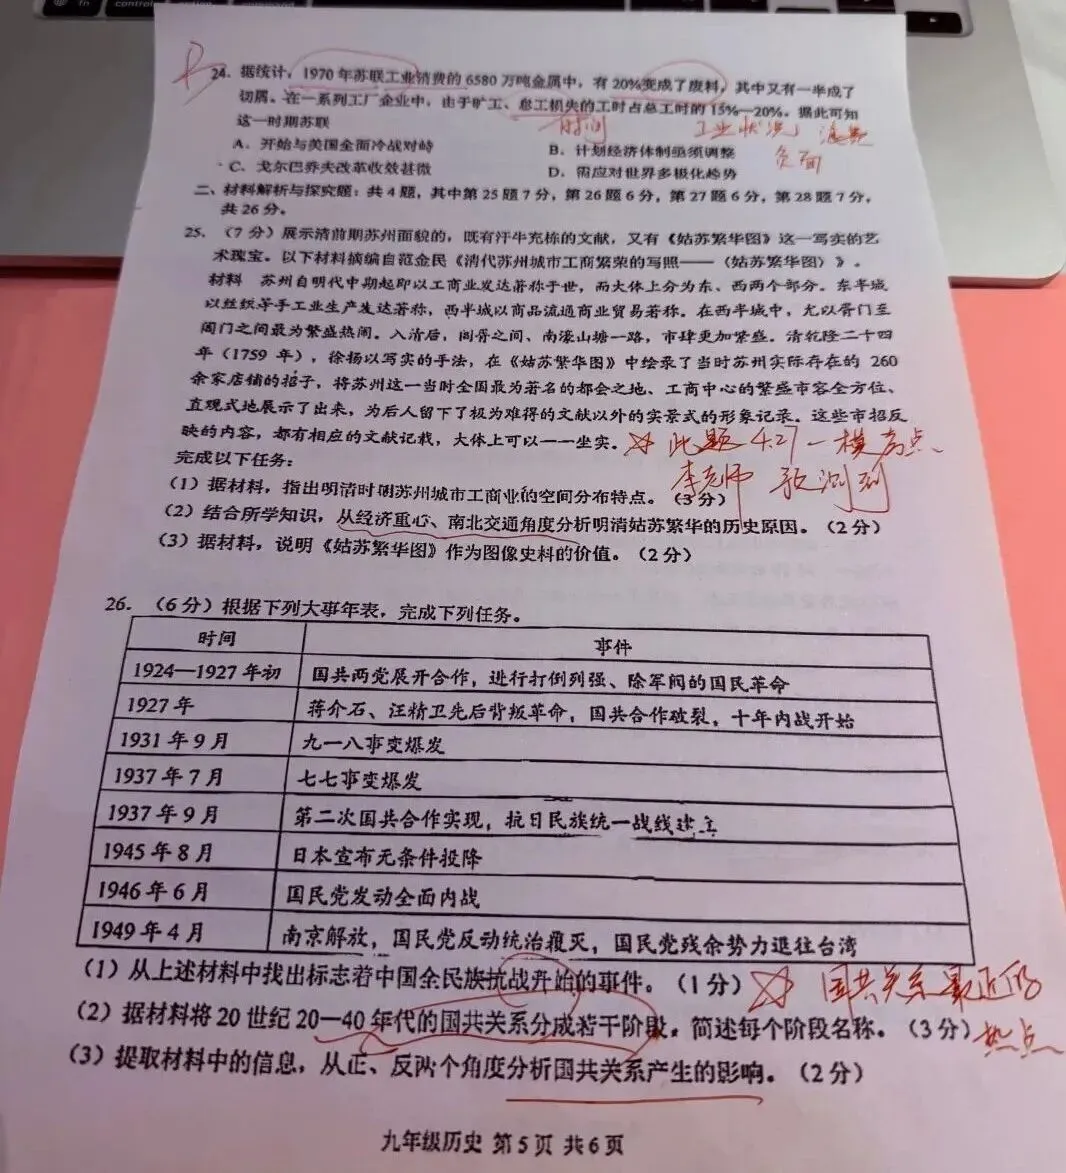 fn
control
option
B
24. 据统计，1970 年苏联工业消费的 6580 万吨金属中，有 20%变成了废料，其中又有一半成了
切屑。在一系列工厂企业中，由于旷工、怠工损失的工时占总工时的 15%—20%。据此可知
时间 工业状况 浪费
这一时期苏联
负面
A. 开始与美国全面冷战对峙 B. 计划经济体制亟须调整
C. 戈尔巴乔夫改革收效甚微 D. 需应对世界多极化趋势
二、材料解析与探究题：共 4 题，其中第 25 题 7 分，第 26 题 6 分，第 27 题 6 分，第 28 题 7 分，
共 26 分。
25. （7 分）展示清前期苏州面貌的，既有汗牛充栋的文献，又有《姑苏繁华图》这一写实的艺
术瑰宝。以下材料摘编自范金民《清代苏州城市工商繁荣的写照——〈姑苏繁华图〉》。
材料 苏州自明代中期起即以工商业发达著称于世，而大体上分为东、西两个部分。东半城
以丝织等手工业生产发达著称，西半城以商品流通商业贸易著称。在西半城中，尤以胥门至
阊门之间最为繁盛热闹。入清后，阊胥之间、南濠山塘一路，市肆更加繁盛。清乾隆二十四
年（1759 年），徐扬以写实的手法，在《姑苏繁华图》中绘录了当时苏州实际存在的 260
余家店铺的招子，将苏州这一当时全国最为著名的都会之地、工商中心的繁盛市容全方位、
直观式地展示了出来，为后人留下了极为难得的文献以外的实景式的形象记录。这些市招反
映的内容，都有相应的文献记载，大体上可以一一坐实。
此题 4.27 一模考点、
完成以下任务：
李老师 预测到
（1）据材料，指出明清时期苏州城市工商业的空间分布特点。（3 分）
（2）结合所学知识，从经济重心、南北交通角度分析明清姑苏繁华的历史原因。（2 分）
（3）据材料，说明《姑苏繁华图》作为图像史料的价值。（2 分）
26. （6 分）根据下列大事年表，完成下列任务。
时间 事件
1924—1927 年初 国共两党展开合作，进行打倒列强、除军阀的国民革命
1927 年 蒋介石、汪精卫先后背叛革命，国共合作破裂，十年内战开始
1931 年 9 月 九一八事变爆发
1937 年 7 月 七七事变爆发
1937 年 9 月 第二次国共合作实现，抗日民族统一战线建立
1945 年 8 月 日本宣布无条件投降
1946 年 6 月 国民党发动全面内战
1949 年 4 月 南京解放，国民党反动统治覆灭，国民党残余势力退往台湾
（1）从上述材料中找出标志着中国全民族抗战开始的事件。（1 分）
国共关系最近的
（2）据材料将 20 世纪 20—40 年代的国共关系分成若干阶段，简述每个阶段名称。（3 分）
热点
（3）提取材料中的信息，从正、反两个角度分析国共关系产生的影响。（2 分）
九年级历史 第 5 页 共 6 页